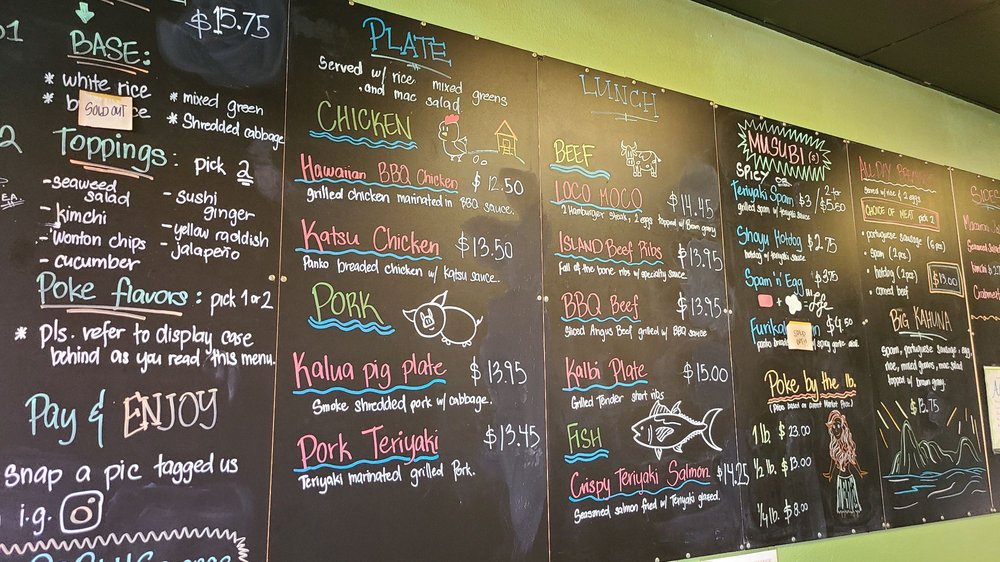 $15.75
BASE:
* white rice
* mixed green
SOLD OUT
* Shredded cabbage
Toppings: pick 2
- seaweed salad
- kimchi
- wonton chips
- cucumber
- sushi ginger
- yellow raddish
- jalapeño
Poke flavors: pick 1 or 2
* pls. refer to display case
behind as you read this menu.
Pay & ENJOY
snap a pic tagged us
i.g.
PLATE
Served w/ rice mixed greens
and mac salad
CHICKEN
Hawaiian BBQ Chicken $12.50
grilled chicken marinated in BBQ sauce.
Katsu Chicken $13.50
Panko breaded chicken w/ Katsu sauce.
PORK
Kalua pig plate $13.95
Smoke shredded pork w/ cabbage.
Pork Teriyaki $13.45
Teriyaki marinated grilled Pork.
LUNCH
BEEF
LOCO MOCO $14.45
2 Hamburger steak, 2 eggs topped w/ Brown gravy
ISLAND Beef Ribs $13.95
Fall of the bone ribs w/ specialty sauce.
BBQ Beef $13.95
Sliced Angus Beef grilled w/ BBQ sauce
Kalbi Plate $15.00
Grilled Tender short ribs
FISH
Crispy Teriyaki Salmon $14.25
Seasoned, salmon fried w/ Teriyaki glazed.
MUSUBI
SPICY
Teriyaki Spam $3 / 2 for $5.50
grilled spam w/ teriyaki sauce
Shoyu Hotdog $2.75
hotdog w/ teriyaki sauce
Spam 'n' Egg $3.75
Life
$4.50
SOLD OUT
Poke by the lb.
(Price based on current Market Price.)
1 lb. $23.00
1/2 lb. $13.00
1/4 lb. $8.00
ALL DAY
served w/ rice & 2 eggs
CHOICE OF MEAT pick 2
• portuguese sausage (6 pcs)
• spam (2 pcs)
• hotdog (2 pcs)
• corned beef
$13.00
BIG KAHUNA
spam, portuguese sausage, egg,
rice, mixed greens, mac salad
topped w/ brown gravy.
SIDES